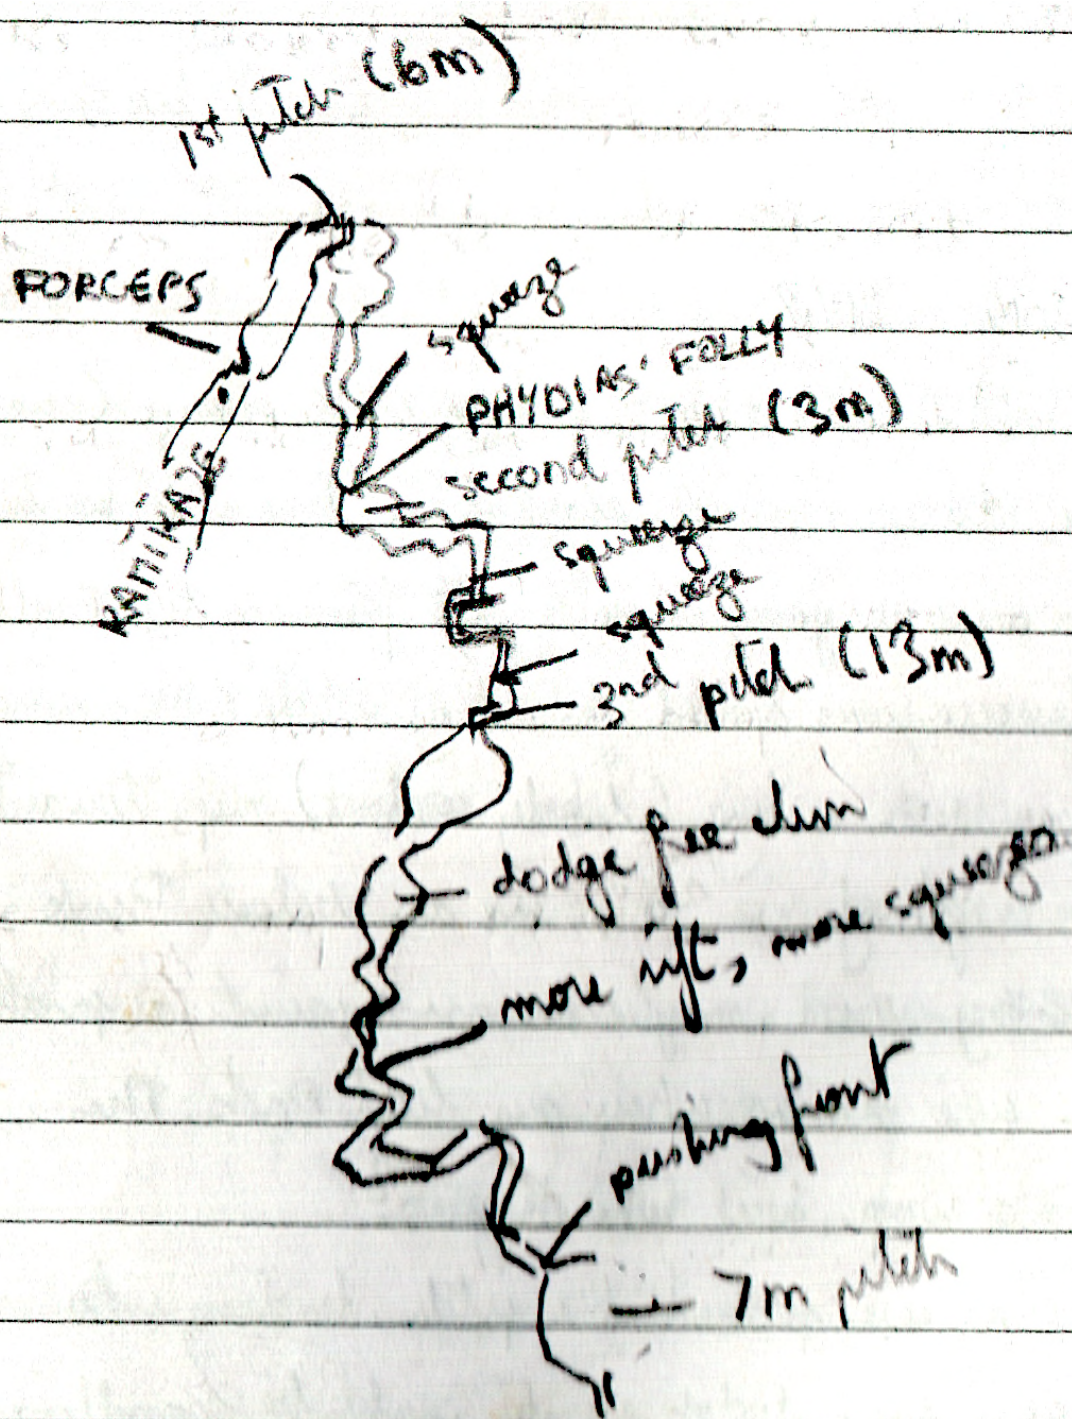 1st pitch (6m)
FORCEPS
squeeze
PHYDIAS' FOLLY
second pitch (3m)
KAMIKAZE
squeeze
squeeze
3rd pitch (13m)
dodge free clim
more rift, more squeezes
pushing front
7m pitch